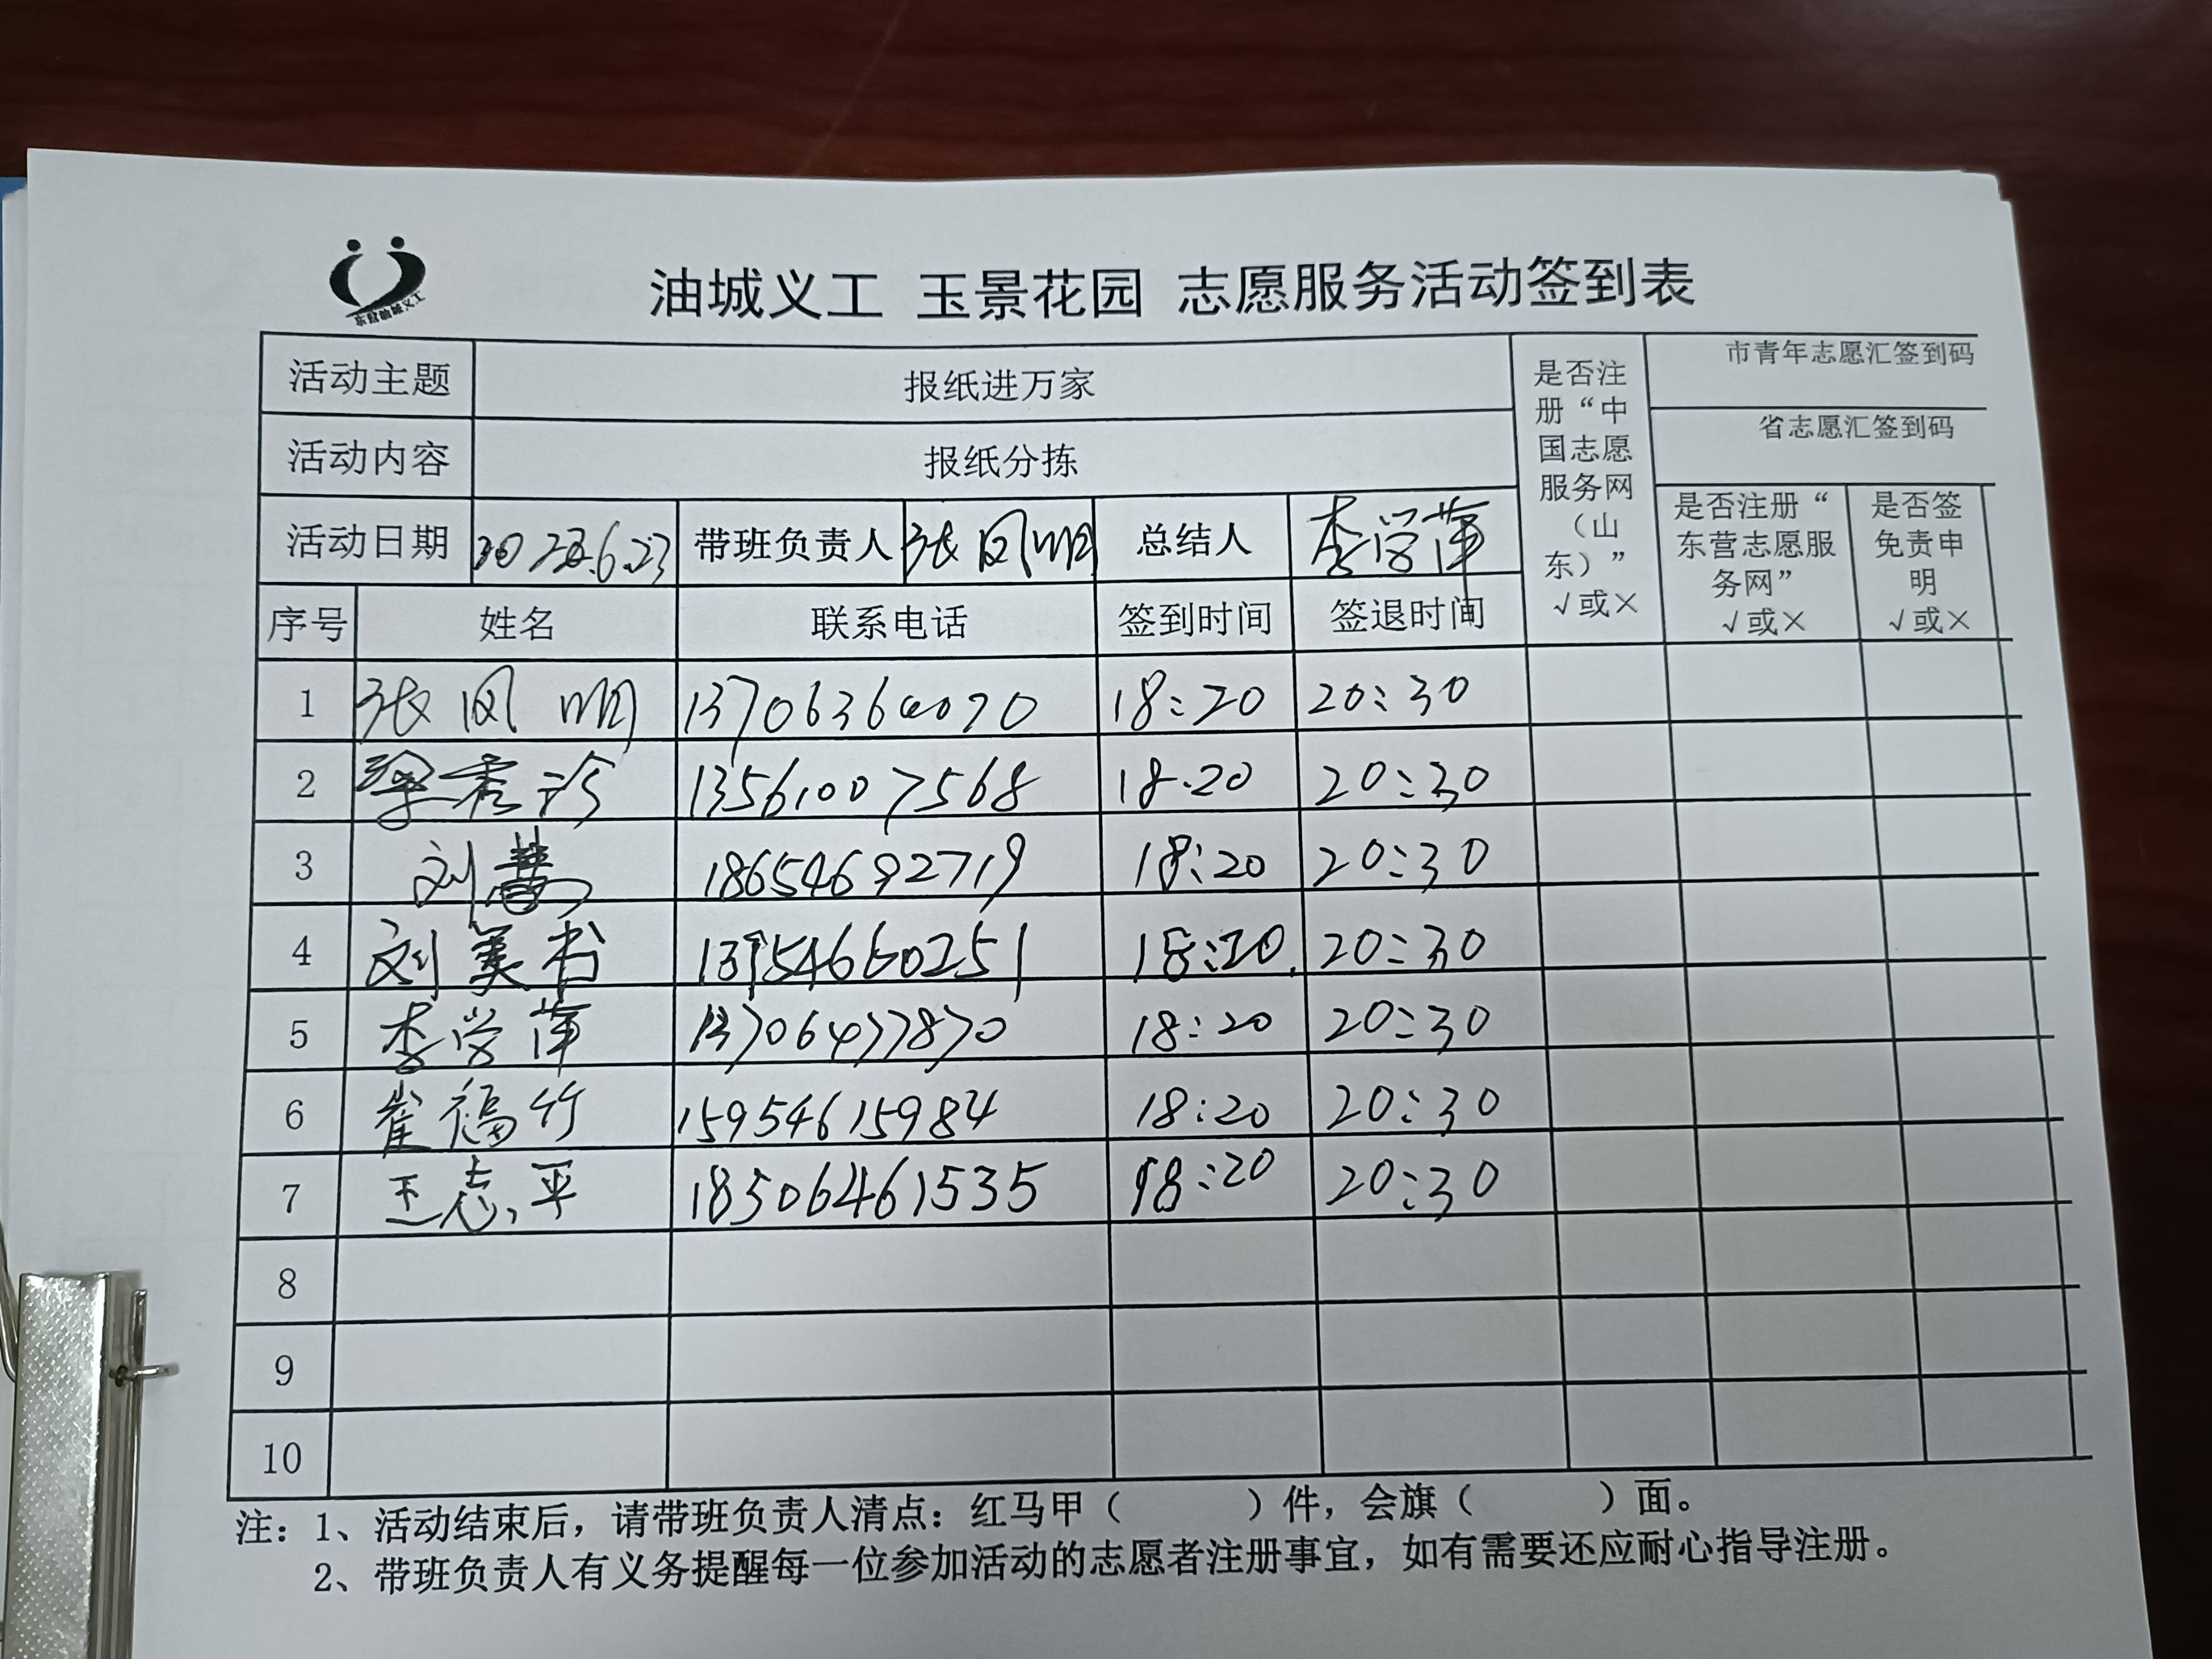 东营油城义工
油城义工 玉景花园 志愿服务活动签到表
活动主题 报纸进万家
活动内容 报纸分拣
活动日期 带班负责人 张凤明 总结人 李学萍
是否注册“中国志愿服务网（山东）” √或×
市青年志愿汇签到码
省志愿汇签到码
是否注册“东营志愿服务网” √或×
是否签免责申明 √或×
序号 姓名 联系电话 签到时间 签退时间
1 张凤明 18:20 20:30
2 梁秀珍 13561007568 18.20 20:30
3 刘慧 18654692719 18:20 20:30
4 刘美书 13954660251 18:20. 20:30
5 李学萍 13706477870 18:20 20:30
6 崔福竹 15954615984 18:20 20:30
7 王志平 18506461535 18:20 20:30
8
9
10
注：1、活动结束后，请带班负责人清点：红马甲（ ）件，会旗（ ）面。
2、带班负责人有义务提醒每一位参加活动的志愿者注册事宜，如有需要还应耐心指导注册。